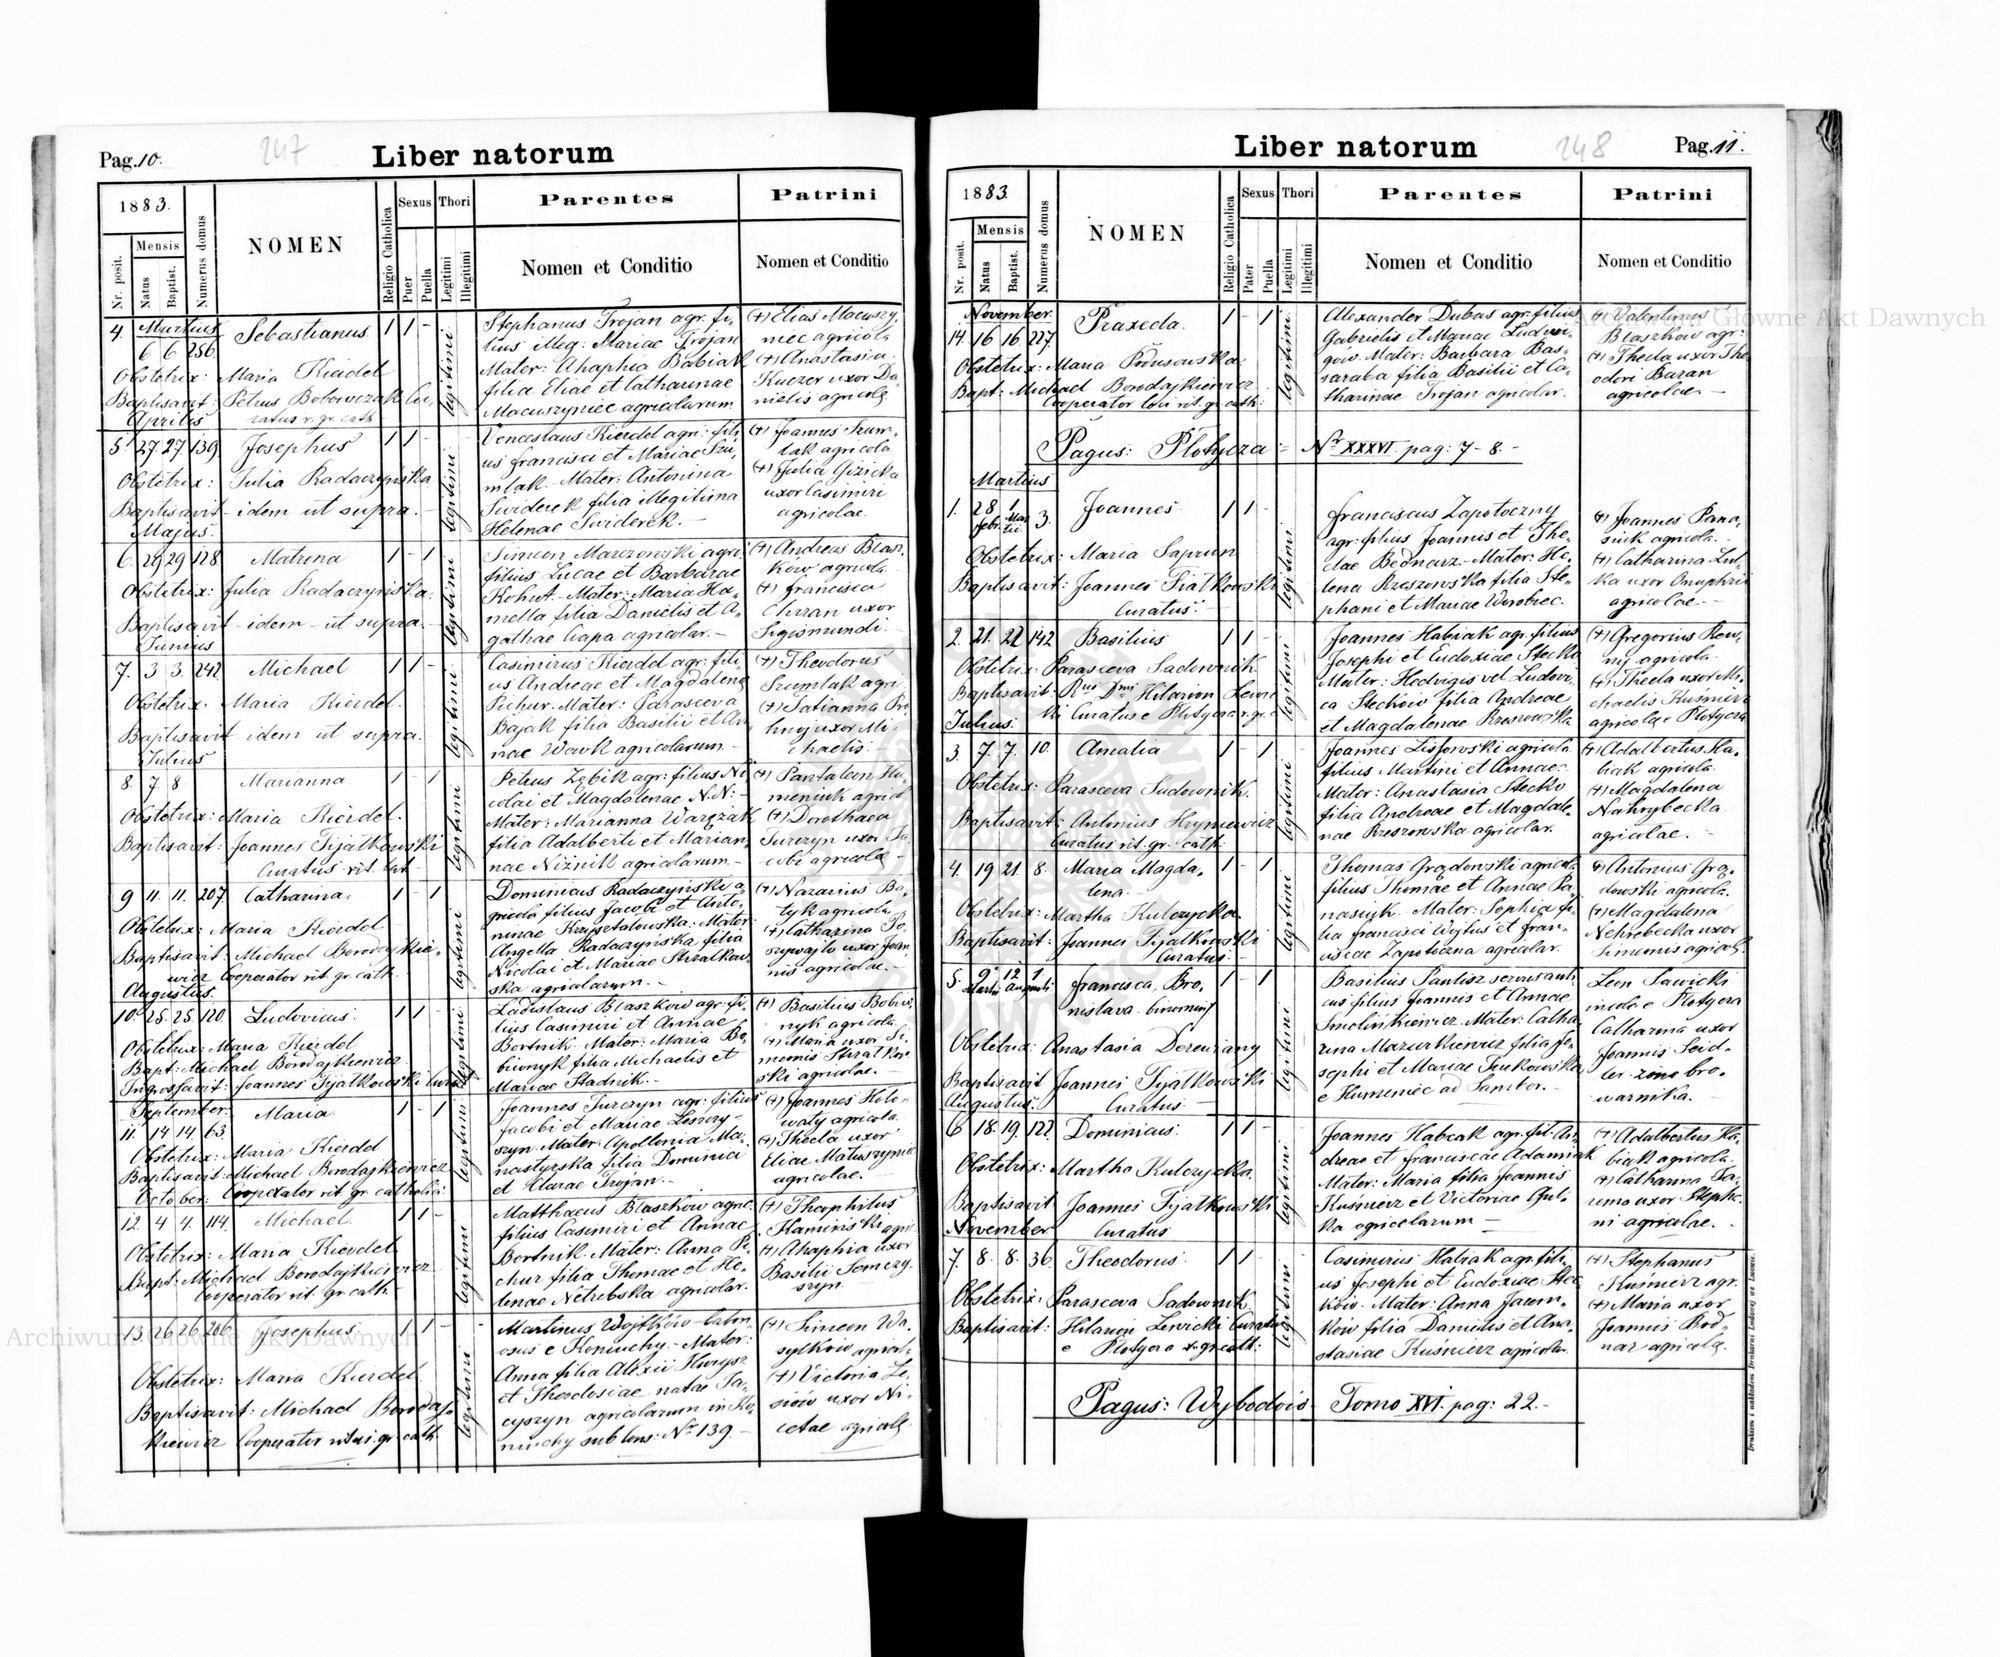 Pag. 10.
247
Liber natorum
1883.
Mensis
Nr. posit.
Natus
Baptist.
Numerus domus
NOMEN
Religio Catholica
Sexus
Puer
Puella
Thori
Legitimi
Illegitimi
Parentes
Nomen et Conditio
Patrini
Nomen et Conditio
4. Martius
6 6 256
Sebastianus 1 1 -
Obstetrix: Maria Kierdel
Baptisavit: Petrus
ratus r. gr. cath
legitimi
Stephanus Trojan agr. fi-
lius illeg: Mariae Trojan
Mater: Ahaphia Babiak
filia Eliae et Catharinae
Macuszyniec agricolarum
(+) Elias Macuszy
niec agricola
(+) Anastasia
Kuczer uxor Da
nielis agricola
Aprilis
5. 27. 27. 139
Josephus 1 1 -
Obstetrix: Julia Radaczyńska
Baptisavit - idem ut supra. -
legitimi
Venceslaus Kierdel agr: fili
us Francisci et Mariae Szu
mlak - Mater: Antonina
Swiderek filia illegitima
Helenae Swiderek. -
(+) Joannes Szum-
lak agricola
(+) Julia Gizicka
uxor Casimiri
agricolae
Majus.
6. 29 29 128
Matrina 1 - 1
Obstetrix: Julia Radaczyńska
Baptisavit - idem - ut supra. -
legitimi
Simeon Marczowski agri:
filius Lucae et Barbarae
Kohut - Mater: Maria Ha-
mella filia Danielis et A-
gathae Capa agricolar. -
(+) Andreas Blasz
kow agricola
(+) Francisca
Chran uxor
Sigismundi.
Junius
7. 3 3. 242
Michael 1 1 -
Obstetrix: Maria Kierdel.
Baptisavit idem ut supra.
legitimi
Casimirus Kierdel agr: fili
us Andreae et Magdalena
Pichur. Mater: Parasceva
Bajak filia Basilii et An
nae Wowk agricolarum -
(+) Theodorus
Szumlak agri
(+) Tatianna
uxor Mi
chaelis
Julius
8. 7 8.
Marianna 1 - 1
Obstetrix: Maria Kierdel.
Baptisavit: Joannes Fijałkowski
Curatus rit. lat
legitimi
Petrus Zębik agr: filius Ni
colai et Magdalenae N. N: -
Mater: Marianna
filia Adalberti et Marian
nae Niźnik agricolarum -
(+) Pantaleon Hu
meniuk agricol
(+) Dorothaea
Jurczyn uxor Ja
cobi agricola -
9 11. 11. 207
Catharina 1 - 1
Obstetrix: Maria Kierdel
Baptisavit: Michael Borodajkie-
wicz Cooperator rit. gr. cath
legitimi
Dominicus Radaczyński a-
gricola filius Jacobi et Anto-
ninae Krzysztalowska: Mater:
Angella Radaczyńska filia
Nicolai et Mariae Strzałkow-
ska agricolarum. -
(+) Nazarius Ba-
tyk agricola
(+) Catharina Po
szywajło uxor Joan
nis agricolae. -
Augustus.
10. 25. 25. 120.
Ludovicus 1 1 -
Obstetrix: Maria Kierdel
Bapt: Michael Borodajkiewicz
Ingrossavit: Joannes Fijałkowski
legitimi
Ladislaus Blaszkow agr: fi-
lius Casimiri et Annae
Bortnik. Mater: Maria
filia Michaelis et
Mariae Stadnik. -
(+) Basilius
agricola
(+) Maria uxor Si
meonis
agricolae. -
September
11. 14. 14. 63.
Maria 1 - 1
Obstetrix: Maria Kierdel
Baptisavit: Michael Borodajkiewicz
Cooperator rit. gr. catholici
legitimi
Joannes Jurczyn agr: filius
Jacobi et Mariae
szyn. Mater: Apollonia Ma-
nastyrska filia Dominici
et Clarae Trojan. -
(+) Joannes Holo-
waty agricola
(+) Thecla uxor
Eliae
agricolae. -
October
12. 4 4. 114.
Michael. 1 1 -
Obstetrix: Maria Kierdel
Bapt: Michael Borodajkiewicz
Cooperator rit. gr. cath
legitimi
Matthaeus Blaszkow agric.
filius Casimiri et Annae
Bortnik. Mater: Anna Pi-
chur filia Thomae et He-
lenae Netrebska agricolar.
(+) Theophilus
Kaminski agri
(+) Ahaphia uxor
Basilii Semczy
szyn.
13 26 26 206
Josephus 1 1 -
Obstetrix: Maria Kierdel.
Baptisavit: Michael Borodaj-
kiewicz Cooperator ritus gr. cath.
legitimi
Martinus Wojtków labor
osus e Koniuchy - Mater:
Anna filia Alexii
et Theodosiae natae
cyszyn agricolarum in Ko-
niuchy sub Cons: Nr 139. -
(+) Simeon Wa-
sylków agricol
(+) Victoria
uxor Ni-
cetae agricola
Liber natorum
248
Pag. 11.
1883.
Mensis
Nr. posit.
Natus
Baptist.
Numerus domus
NOMEN
Religio Catholica
Sexus
Pater
Puella
Thori
Legitimi
Illegitimi
Parentes
Nomen et Conditio
Patrini
Nomen et Conditio
November.
14. 16 16. 227
Praxeda. 1 - 1
Obstetrix: Maria
Bapt: Michael Borodajkiewicz
Cooperator loci rit. gr. cath:
legitimi
Alexander Dubas agr. filius
Gabrielis et Mariae Ludwi-
gów. Mater: Barbara Bas-
saraba filia Basilii et Ca-
tharinae Trojan agricolar.
(+) Valentinus
Blaszkow agr:
(+) Thecla uxor The
odori Baran
agricolae -
Pagus: Płotycza = Nr XXXVI. pag: 7-8. -
Martius
1. 28 Febr. 1 Mar tii 3.
Joannes 1 1 -
Obstetrix: Maria Saprun
Baptisavit: Joannes Fiałkowski
Curatus. -
legitimi
Franciscus Zapotoczny
agr. filius Joannis et The-
clae Bednarz - Mater: He-
lena Rzeszowska filia Ste-
phani et Mariae Worobiec.
(+) Joannes Pana-
siuk agricola. -
(+) Catharina Lul-
ka uxor Onuphrii
agricolae. -
2. 21. 22 142
Basilius 1 1 -
Obstetrix: Parasceva Sadownik
Baptisavit: Rus Dnus Hilarion Lewic
ki Curatus e Płotycza r. gr. c
legitimi
Joannes Habiak agr. filius
Josephi et Eudoxiae Stecko
Mater: Hedvigis vel Ludovi-
ca Steckow filia Andreae
et Magdalenae Rzeszowska
(+) Gregorius
agricola
(+) Thecla uxor Mi-
chaelis Kuśnierz
agricola e Płotycza
Julius.
3. 7. 7. 10.
Amalia 1 - 1
Obstetrix: Parasceva Sadownik.
Baptisavit: Antonius Hryniewicz
Curatus rit. gr. cath:
legitimi
Joannes Lisowski agricola
filius Martini et Annae
Mater: Anastasia Stecko
filia Andreae et Magdale-
nae Rzeszowska agricolar.
(+) Adalbertus Ha-
biak agricola.
(+) Magdalena
Nahrybecka
agricolae. -
4. 19 21. 8.
Maria Magda-
lena. - 1 - 1
Obstetrix: Martha Kulczycka.
Baptisavit: Joannes Fijałkowski
Curatus
legitimi
Thomas Grądowski agricola
filius Thomae et Annae Pa-
nasiuk. Mater: Sophia fi-
lia Francisci Wojtus et Fran-
ciscae Zapotoczna agricolar.
(+) Antonius Grą-
dowski agricola.
(+) Magdalena
Nehrebecka uxor
Simeonis agricol
5. 9 Martii 12 Augusti 1
Francisca, Bro-
nislava binominis 1 - 1
Obstetrix: Anastasia Derewiany
Baptisavit Joannes Fijałkowski
Curatus
legitimi
Basilius Pantisz serous
filius Joannis et Annae
Smolinkiewicz. Mater: Catha
rina Mazurkiewicz filia Jo-
sephi et Mariae
e Humeniec ad Sambor. -
Leon Sawicki
incola e Płotycza
Catharina uxor
Joannis Seid-
ler - żona bro-
warnika.
Augustus.
6 18. 19. 122.
Dominicus. 1 1 -
Obstetrix: Martha Kulczycka.
Baptisavit Joannes Fijałkowski
Curatus
legitimi
Joannes Habcak agr. fil. An
dreae et Franciscae Adamiak
Mater: Maria filia Joannis
Kuśnierz et Victoriae Gul-
ka agricolarum -
(+) Adalbertus Ha-
biak agricola.
(+) Catharina
uxor Stepha-
ni agricolae. -
November
7. 8. 8. 36.
Theodorus. 1 1 -
Obstetrix: Parasceva Sadownik.
Baptisavit: Hilarion Lewicki Curatus
e Płotycza r. gr. cath:
legitimi
Casimirus Habiak agr. fili-
us Josephi et Eudoxiae Stec
ków. Mater: Anna Jacem-
ków filia Danielis et Ana-
stasiae Kuśnierz agricolar.
(+) Stephanus
Kuśnierz agr.
(+) Maria uxor
Joannis Bod-
nar agricola.
Pagus: Wybodów - Tomo XVI. pag: 22. -
Archiwum Główne Akt Dawnych
Archiwum Główne Akt Dawnych